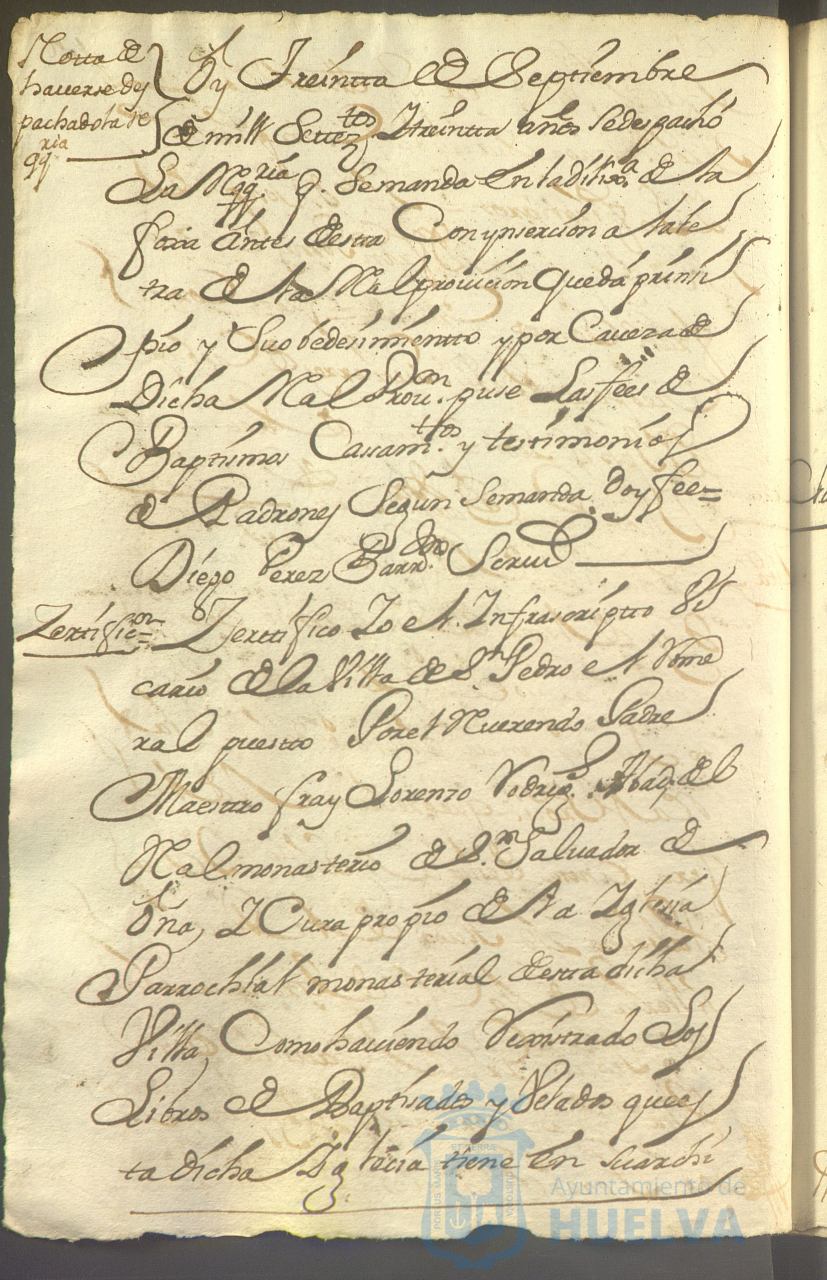 Notta de
haverse des
pachado la re
ria
qq
Oy Treintta de Septiembre
de mill Settez.tos Ytreintta años se despachó
La Rqqria q. se manda en la dilixa de la
foxa antes desta Con ynsercion a la le
tra de la Real provicion que da prinsi
pio y Suobedesimientto y por Caveza de
Dicha Real Prou.on puse Las fees de
Baptismos Cassam.ttos y testimonios
de Padrones Segun se manda doy fee=
Diego Perez Barr.do Scriu
Zertific.on Zerttifico Yo el Infrascriptto Vi
cario de la Villa de S.n Pedro el Rome
ral puestto Por el Rverendo Padre
Maestro fray Lorenzo Rodrig.z Abad del
Real monasterio de S.n Salvador de
Oña, Y Cura propio de la Yglesia
Parrochial monasterial de esta dicha
Villa, Como haviendo Rexistrado Los
Libros de Baptizados y Velados que es
ta dicha Yglecia tiene En su archi
Ayuntamiento de
HUELVA